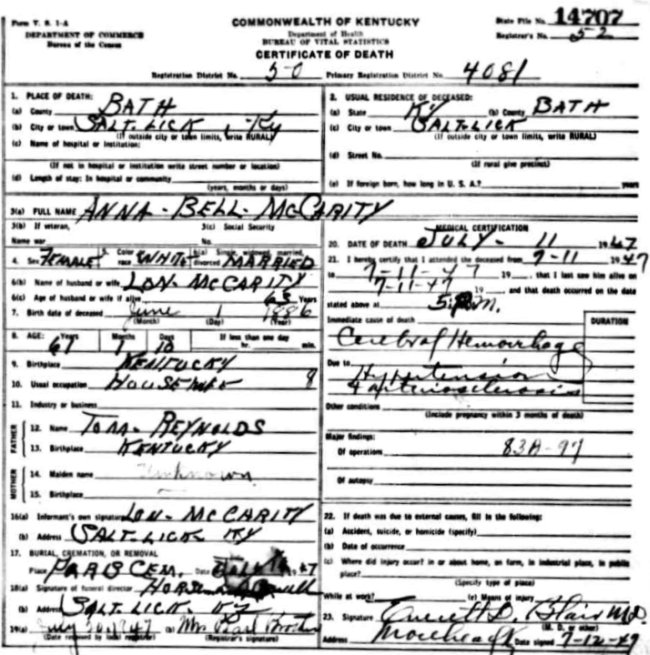 Form V. S. 1-A
DEPARTMENT OF COMMERCE
Bureau of the Census
COMMONWEALTH OF KENTUCKY
Department of Health
BUREAU OF VITAL STATISTICS
CERTIFICATE OF DEATH
State File No. 14707
Registrar's No. 52
Registration District No. 50 Primary Registration District No. 4081
1. PLACE OF DEATH:
(a) County BATH
(b) City or town SALT. LICK, Ky
(If outside city or town limits, write RURAL)
(c) Name of hospital or institution:
(If not in hospital or institution write street number or location)
(d) Length of stay: In hospital or community
(years, months or days)
2. USUAL RESIDENCE OF DECEASED:
(a) State Ky (b) County BATH
(c) City or town SALT. LICK
(If outside city or town limits, write RURAL)
(d) Street No.
(If rural give precinct)
(e) If foreign born, how long in U. S. A.? years
3(a) FULL NAME ANNA-BELL-McCARITY
3(b) If veteran, 3(c) Social Security
Name war No.
4. Sex FEMALE 5. Color or race WHITE 6(a) Single, widowed, married, divorced MARRIED
6(b) Name of husband or wife LON-McCARITY
6(c) Age of husband or wife if alive 68 Years
7. Birth date of deceased June 1 1886
(Month) (Day) (Year)
8. AGE: Years Months Days If less than one day
61 1 10 hr. min.
9. Birthplace KENTUCKY
10. Usual occupation HOUSEWIFE 8
11. Industry or business
FATHER
12. Name TOM-REYNOLDS
13. Birthplace KENTUCKY
MOTHER
14. Maiden name Unknown
15. Birthplace
16(a) Informant's own signature LON-McCARITY
(b) Address SALT-LICK KY
17. BURIAL, CREMATION, OR REMOVAL
Place CEM. Date 47
18(a) Signature of funeral director
(b) Address SALT. LICK. KY
19(a) July 30, 1947 (b) Mrs
(Date received by local registrar) (Registrar's signature)
MEDICAL CERTIFICATION
20. DATE OF DEATH JULY- 11 1947
21. I hereby certify that I attended the deceased from 7-11 1947
to 7-11-47 19 , that I last saw him alive on
7-11-47 19 , and that death occurred on the date
stated above at M.
Immediate cause of death DURATION
Cerebral Hemorrhage
Due to Hypertension
& arteriosclerosis
Other conditions
(Include pregnancy within 3 months of death)
Major findings:
Of operations 83A-97
Of autopsy
22. If death was due to external causes, fill in the following:
(a) Accident, suicide, or homicide (specify)
(b) Date of occurrence
(c) Where did injury occur? in or about home, on farm, in industrial place, in public
place?
(Specify type of place)
While at work? (e) Means of injury
23. Signature Everett D. Blair M.D.
(M. D. or other)
Address Morehead Ky Date signed 7-12-47